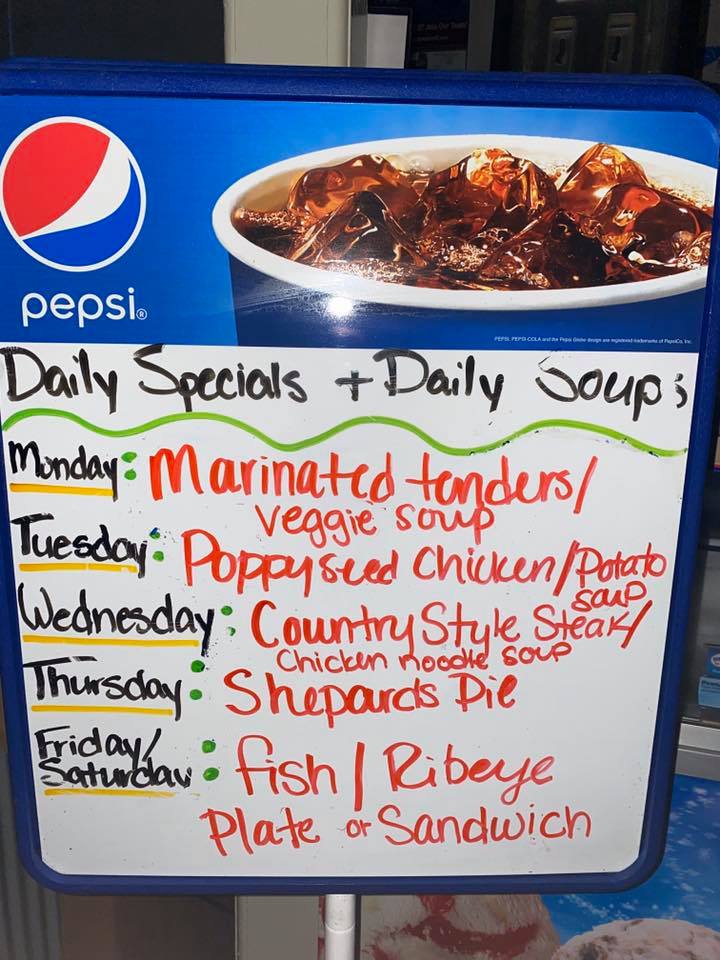 pepsi®
PEPSI, PEPSI-COLA and the Pepsi Globe design are registered trademarks of PepsiCo, Inc.
Daily Specials + Daily Soups
Monday: Marinated tenders/
Veggie soup
Tuesday: Poppyseed Chicken/Potato
soup
Wednesday: Country Style Steak/
Chicken noodle soup
Thursday: Shepards Pie
Friday/
Saturday: fish / Ribeye
Plate or Sandwich